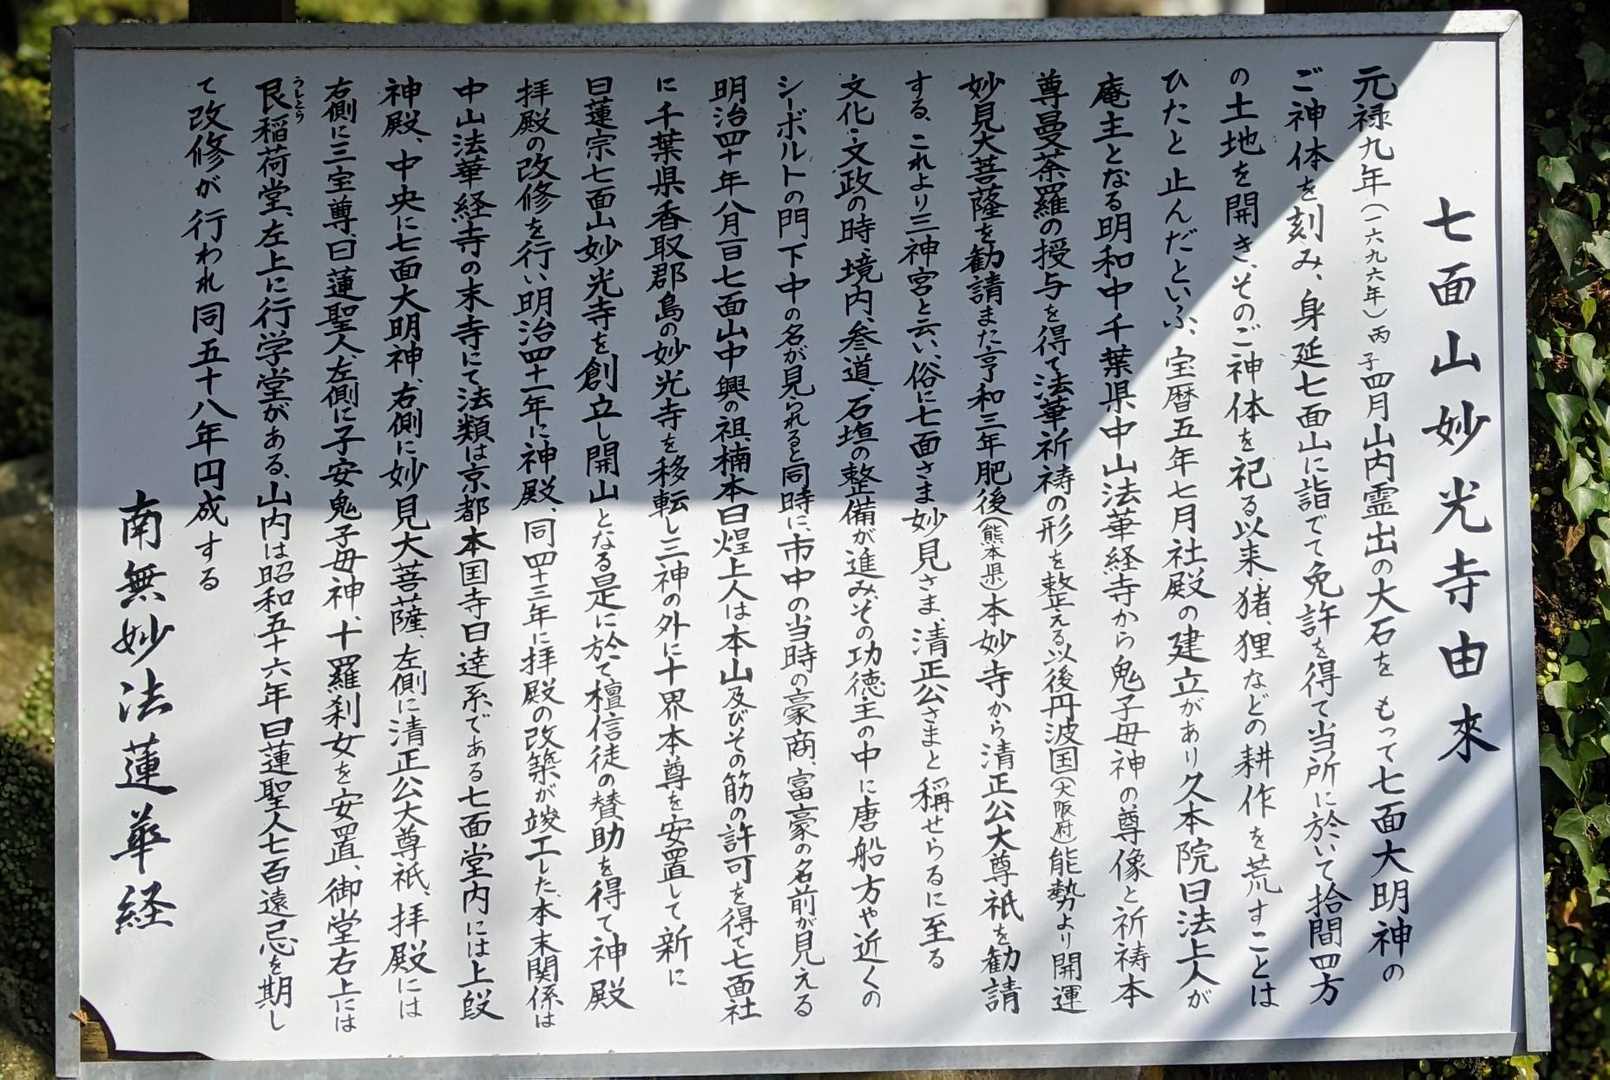 七面山妙光寺由來
元禄九年(一六九六年)丙子四月山内霊出の大石を もって七面大明神の
ご神体を刻み、身延七面山に詣でて免許を得て当所に於いて拾間四方
の土地を開き、そのご神体を祀る以来、猪、狸などの耕作を荒すことは
ひたと止んだといふ、宝暦五年七月社殿の建立があり久本院日法上人が
庵主となる明和中千葉県中山法華経寺から鬼子母神の尊像と祈祷本
尊曼荼羅の授与を得て法華祈祷の形を整える以後丹波国(大阪府)能勢より開運
妙見大菩薩を勧請また享和三年肥後(熊本県)本妙寺から清正公大尊祇を勧請
する、これより三神宮と云い、俗に七面さま妙見さま、清正公さまと稱せらるに至る
文化・文政の時、境内、参道、石垣の整備が進み、その功徳主の中に唐船方や近くの
シーボルトの門下中の名が見られると同時に、市中の当時の豪商、富豪の名前が見える
明治四十年八月一日七面山中興の祖、楠本日煌上人は本山及びその筋の許可を得て七面社
に千葉県香取郡島の妙光寺を移転し三神の外に十界本尊を安置して新に
日蓮宗七面山妙光寺を創立し開山となる是に於て檀信徒の賛助を得て神殿
拝殿の改修を行い明治四十一年に神殿、同四十三年に拝殿の改築が竣工した、本末関係は
中山法華経寺の末寺にて法類は京都本国寺日逹系である七面堂内には上段
神殿、中央に七面大明神、右側に妙見大菩薩、左側に清正公大尊祇、拝殿には
右側に三宝尊日蓮聖人、左側に子安鬼子母神、十羅刹女を安置、御堂右上には
艮稲荷堂、左上に行学堂がある、山内は昭和五十六年日蓮聖人七百遠忌を期し
うしとら
て改修が行われ同五十八年円成する
南無妙法蓮華経